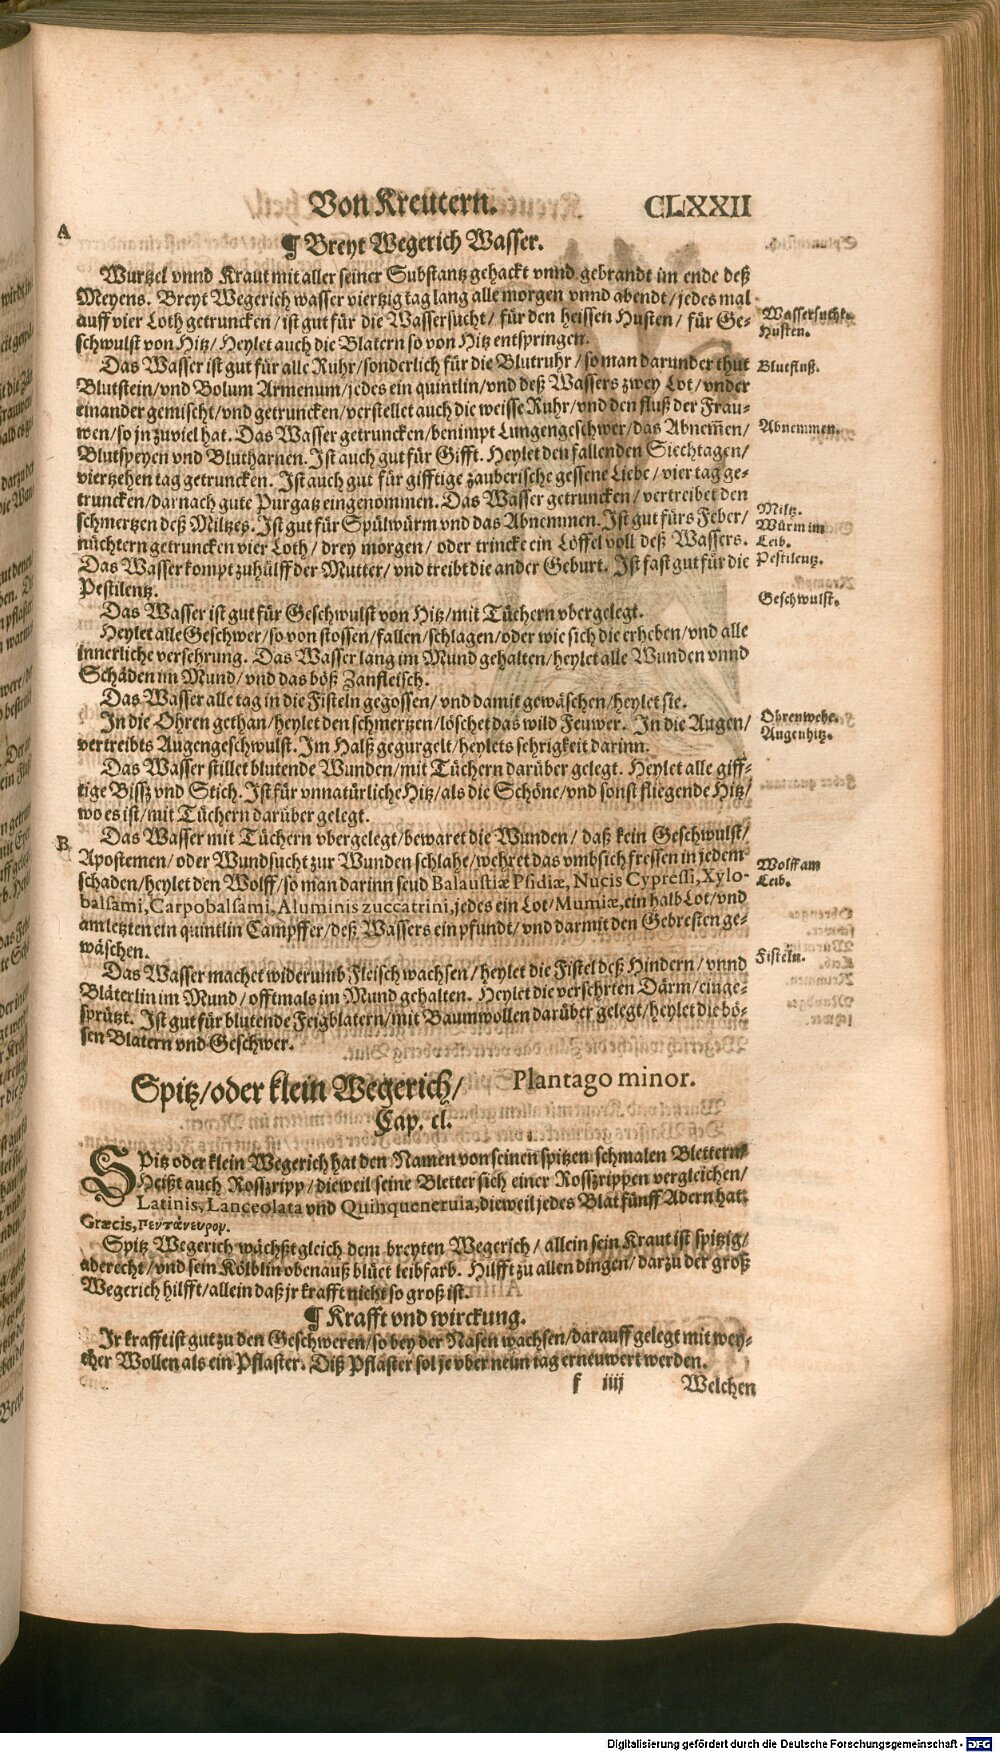 Von Kreutern. CLXXII
A
¶ Breyt Wegerich Wasser.
Wurtzel vnnd Kraut mit aller seiner Substantz gehackt vnnd gebrandt im ende deß
Meyens. Breyt Wegerich wasser viertzig tag lang alle morgen vnnd abendt/jedes mal
auff vier Loth getruncken/ist gut für die Wassersucht/ für den heissen Husten/ für Ge-
schwulst von Hitz/Heylet auch die Blatern so von Hitz entspringen.
Wassersucht.
Husten.
Das Wasser ist gut für alle Ruhr/sonderlich für die Blutruhr/so man darunder thut
Blutfluß.
Blutstein/vnd Bolum Armenum/jedes ein quintlin/vnd deß Wassers zwey Lot/vnder
einander gemischt/vnd getruncken/verstellet auch die weisse Ruhr/vnd den fluß der Frau-
wen/so jn zuviel hat. Das Wasser getruncken/benimpt Lungengeschwer/das Abnem̃en/
Abnemmen.
Blutspeyen vnd Blutharnen. Ist auch gut für Gifft. Heylet den fallenden Siechtagen/
viertzehen tag getruncken. Ist auch gut für gifftige zauberische gessene Liebe/vier tag ge-
truncken/darnach gute Purgatz eingenommen. Das Wasser getruncken/vertreibet den
schmertzen deß Miltzes. Ist gut für Spülwürm vnd das Abnemmen. Ist gut fürs Feber/
Miltz.
Würm im
Leib.
nüchtern getruncken vier Loth/drey morgen/ oder trincke ein Löffel voll deß Wassers.
Das Wasser kompt zuhülff der Mutter/vnd treibt die ander Geburt. Ist fast gut für die
Pestilentz.
Pestilentz.
Das Wasser ist gut für Geschwulst von Hitz/mit Tüchern vbergelegt.
Geschwulst.
Heylet alle Geschwer/so von stossen/fallen/schlagen/oder wie sich die erheben/vnd alle
innerliche versehrung. Das Wasser lang im Mund gehalten/heylet alle Wunden vnnd
Schäden im Mund/vnd das böß Zanfleisch.
Das Wasser alle tag in die Fisteln gegossen/vnd damit gewäschen/heylet sie.
In die Ohren gethan/heylet den schmertzen/löschet das wild Feuwer. In die Augen/
vertreibts Augengeschwulst. Im Halß gegurgelt/heylets sehrigkeit darinn.
Ohrenwehe.
Augenhitz.
Das Wasser stillet blutende Wunden/mit Tüchern darüber gelegt. Heylet alle giff-
tige Bissz vnd Stich. Ist für vnnatürliche Hitz/als die Schöne/vnd sonst fliegende Hitz/
wo es ist/mit Tüchern darüber gelegt.
B
Das Wasser mit Tüchern vbergelegt/bewaret die Wunden/ daß kein Geschwulst/
Apostemen/oder Wundsucht zur Wunden schlahe/wehret das vmbsich fressen in jedem
schaden/heylet den Wolff/so man darinn seud Balaustiæ Psidiæ, Nucis Cypressi, Xylo-
Wolff am
Leib.
balsami, Carpobalsami, Aluminis zuccatrini, jedes ein Lot/Mumiæ, ein halb Lot/vnd
am letzten ein quintlin Campffer/deß Wassers ein pfundt/vnd darmit den Gebresten ge-
wäschen.
Das Wasser machet widerumb Fleisch wachsen/heylet die Fistel deß Hindern/vnnd
Fisteln.
Bläterlin im Mund/offtmals im Mund gehalten. Heylet die versehrten Därm/einge-
sprützt. Ist gut für blutende Feigblatern/mit Baumwollen darüber gelegt/heylet die bö-
sen Blatern vnd Geschwer.
Spitz/oder klein Wegerich/ Plantago minor.
Cap. cl.
Spitz oder klein Wegerich hat den Namen von seinen spitzen schmalen Blettern/
Heißt auch Rossz ripp/dieweil seine Bletter sich einer Rosszrippen vergleichen/
Latinis, Lanceolata vnd Quinqueneruia, dieweil jedes Blat fünff Adern hat.
Græcis, πεντάνευρον.
Spitz Wegerich wächßt gleich dem breyten Wegerich/ allein sein Kraut ist spitzig/
aderecht/vnd sein Kölblin obenauß blüet leibfarb. Hilfft zu allen dingen/darzu der groß
Wegerich hilfft/allein daß jr krafft nicht so groß ist.
¶ Krafft vnd wirckung.
Ir krafft ist gut zu den Geschweren/so bey der Nasen wachsen/darauff gelegt mit wey-
cher Wollen als ein Pflaster. Diß Pflaster sol je vber neun tag erneuwert werden.
f iiij Welchen
Digitalisierung gefördert durch die Deutsche Forschungsgemeinschaft - DFG